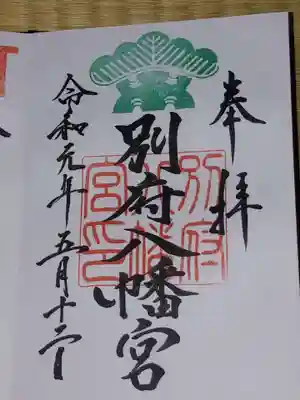 奉拝
別府八幡宮
令和元年五月十二日
別府
八幡
宮印